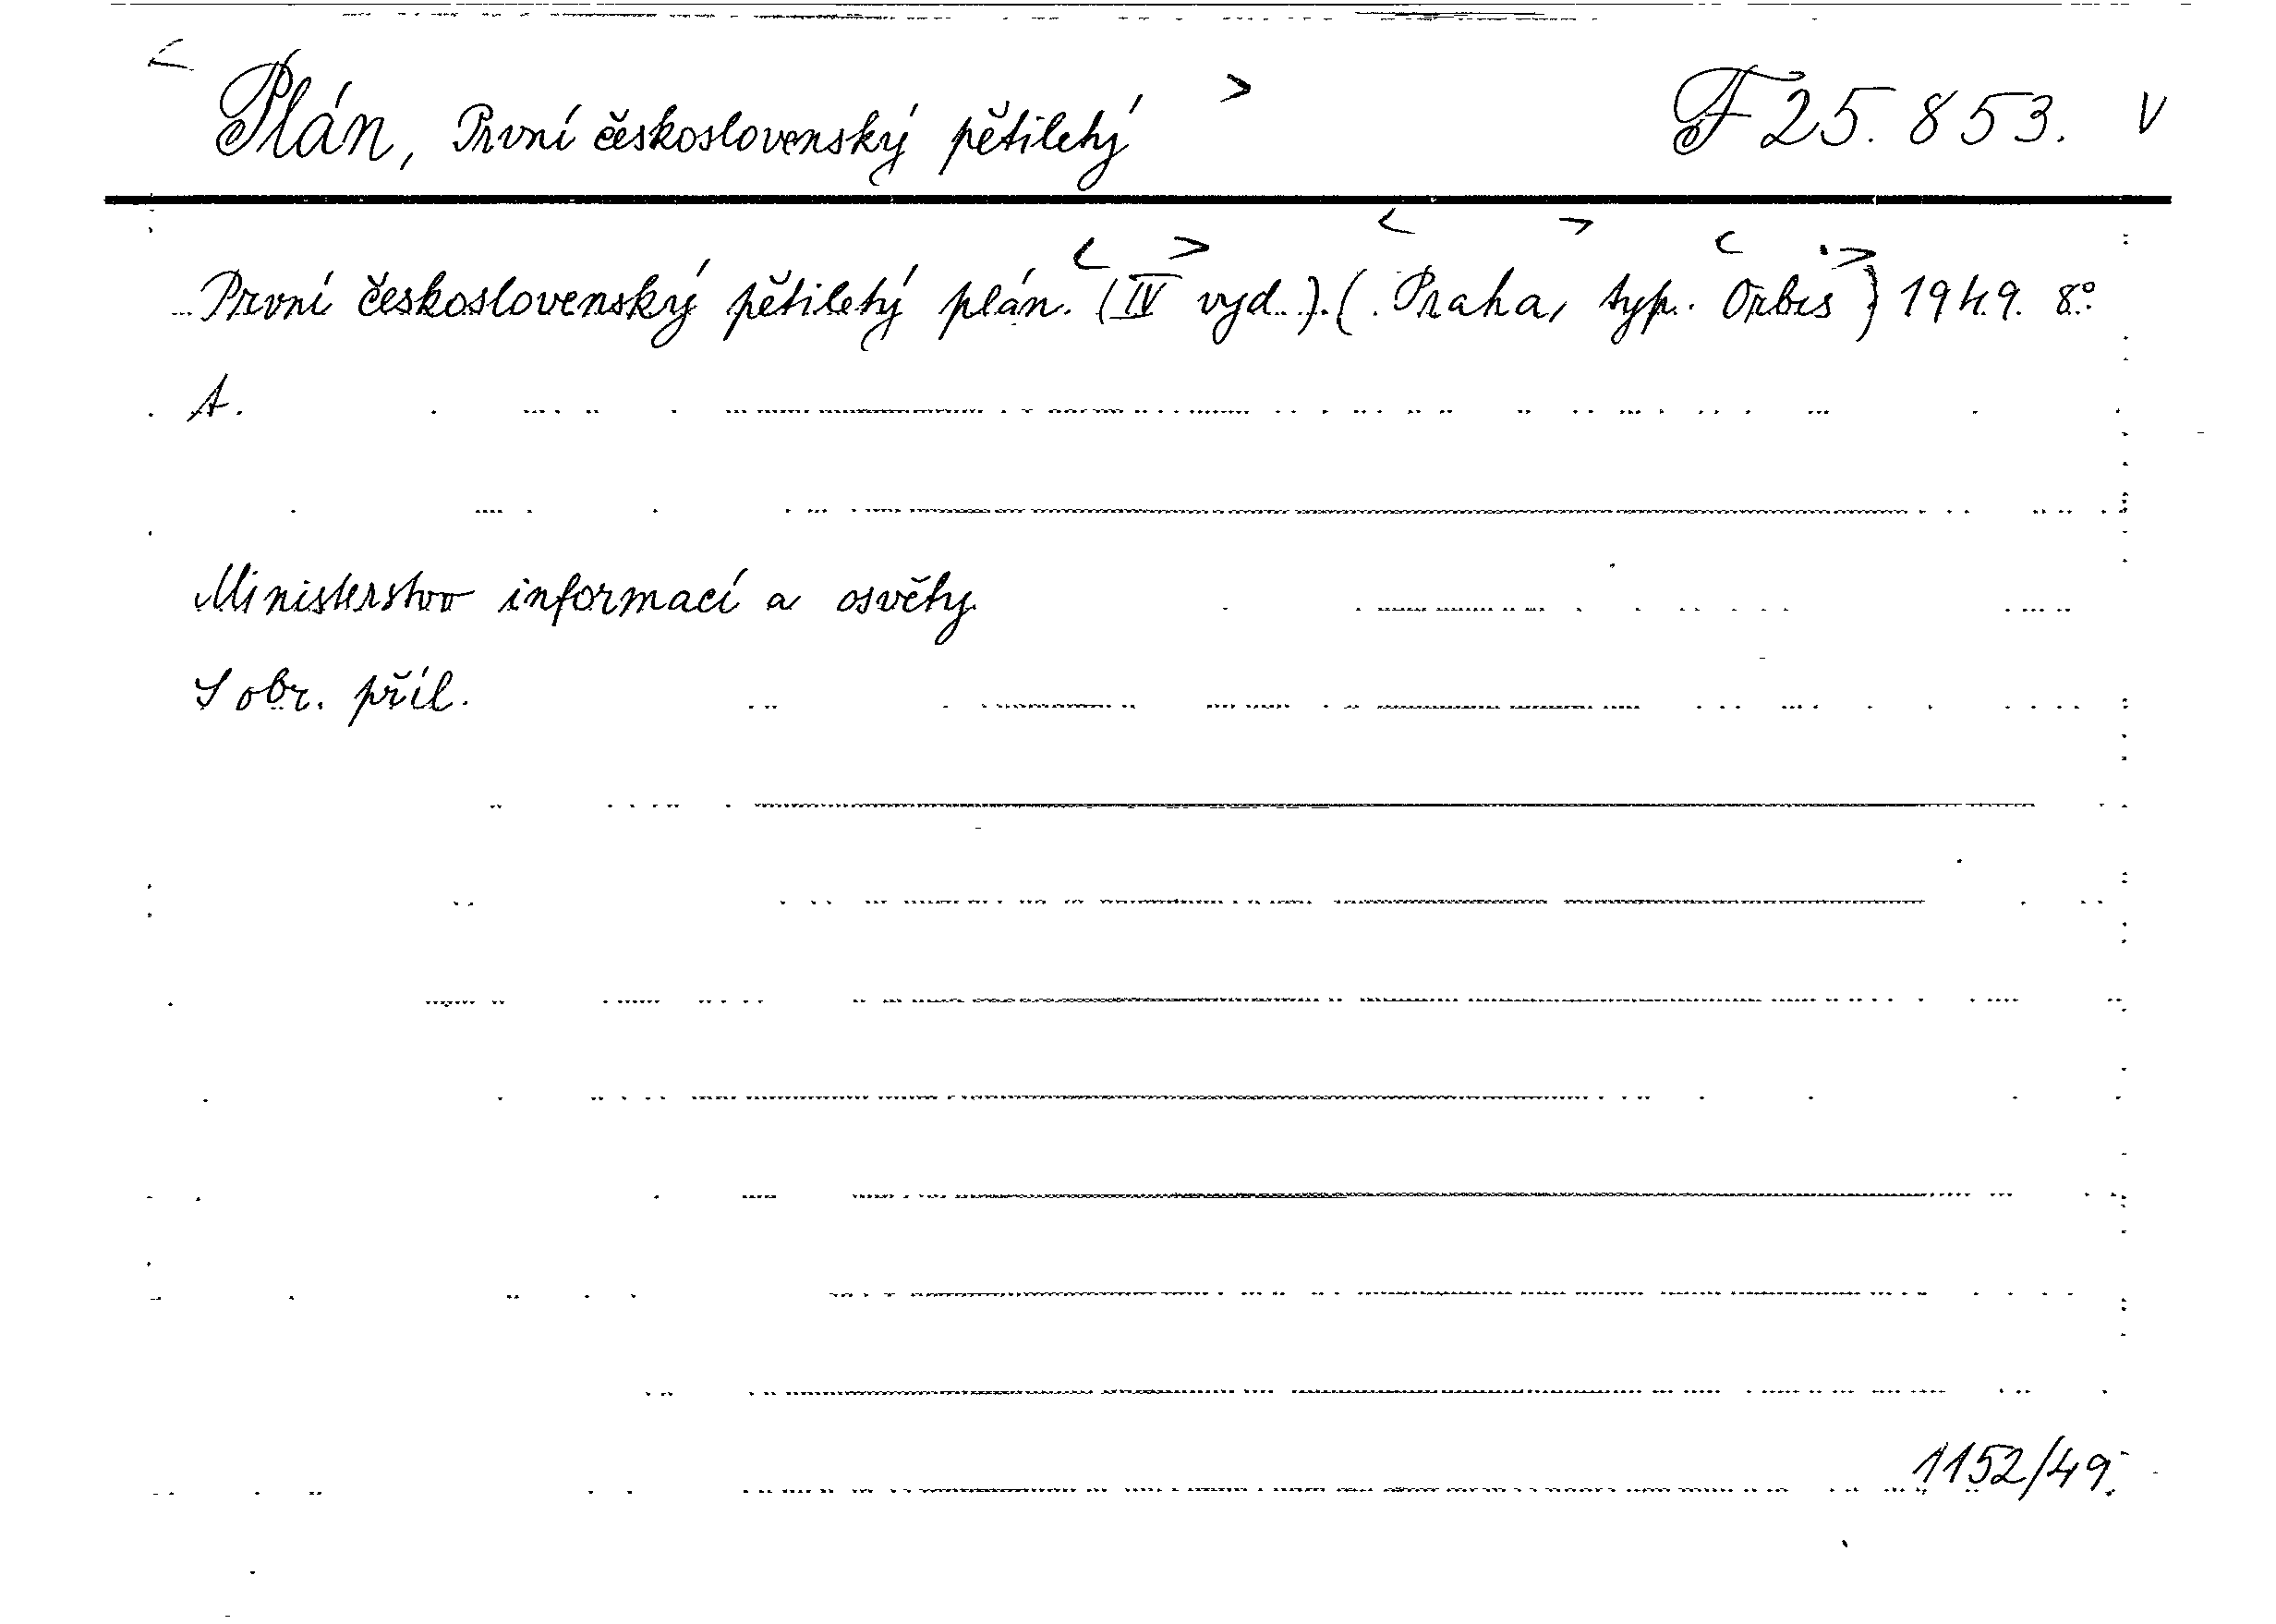 Plán, První československý pětiletý F 25.853. V
První československý pětiletý plán. (IV vyd.). (Praha, typ. Orbis) 1949. 8°.
A.
Ministerstvo informací a osvěty
S obr. příl.
1152/49.